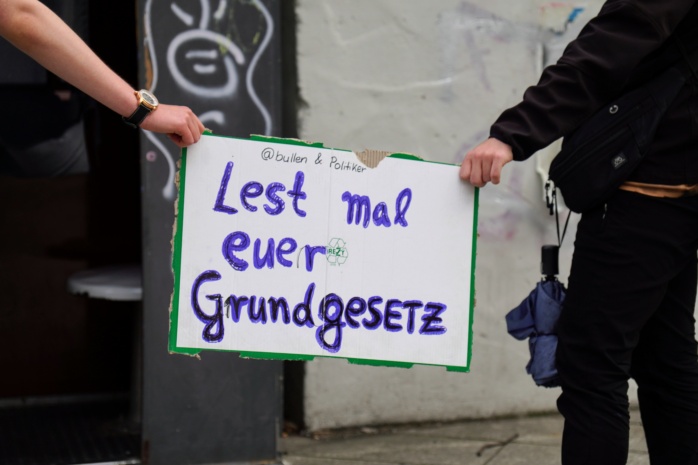 @bullen & Politiker
Lest mal
euer
Grundgesetz